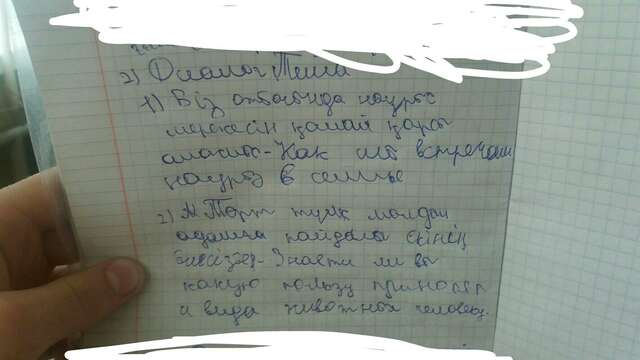 2) Диалог Тема
1) Біз отбасында наурыз
мерекесін қалай қарсы
аламыз - Как мы встречаем
наурыз в семье
2) Төрт түлік малдың
адамға пайдалы екінің
білесіздер - Знаете ли вы
какую пользу приносят
4 вида животных человеку.